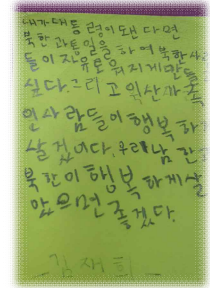 내가 대통령이 됀다면
북한과 통일을 하여 북한사람
들이 자유로워지게 만들
싶다. 그리고
사람들이 행복하
살겠이다. 우리 남한
북한이 행복하게 살
았으면 좋겠다.
김재희